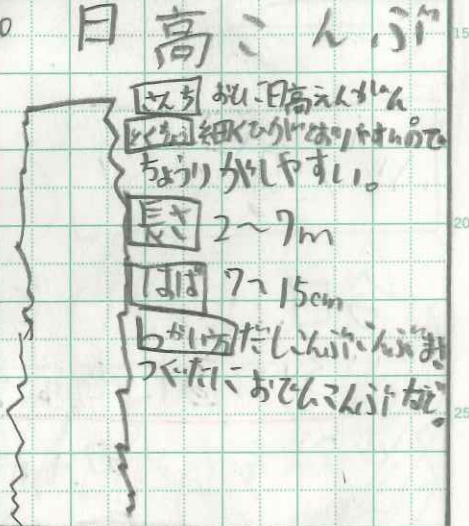 日高こんぶ
さんち おもに日高えんがん
とくちょう 細くひがとおりやすいので
ちょうりがしやすい。
長さ 2〜7m
はば 7〜15cm
つかい方 だしこんぶ、こんぶまき
つくだに おでんこんぶなど。
15
20
25